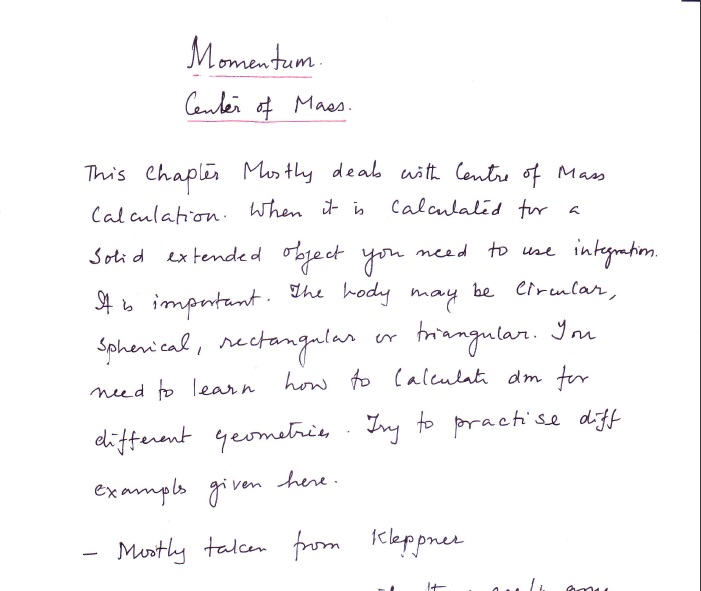 Momentum.
Center of Mass.
This Chapter Mostly deals with Centre of Mass
Calculation. When it is Calculated for a
Solid extended object you need to use integration.
It is important. The body may be Circular,
Spherical, rectangular or triangular. You
need to learn how to Calculate dm for
different geometries. Try to practise diff
examples given here.
- Mostly taken from Kleppner